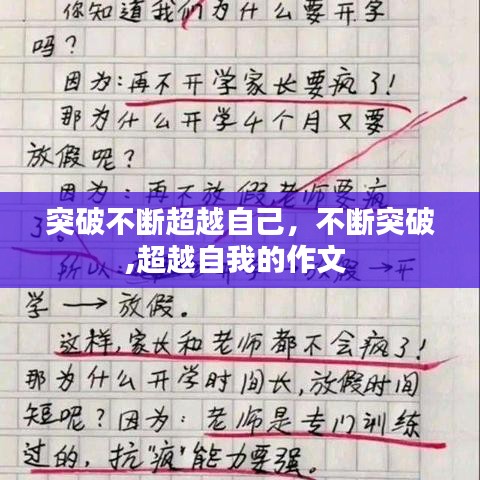 你知道我们为什么要开学
吗？
因为：再不开学家长要疯了！
那为什么开学4个月又要
放假呢？
因为：再不放假,老师要疯
突破不断超越自己，不断突破
,超越自我的作文
放假→开
学→放假。
这样,家长和老师都不会疯了！
那为什么开学时间长,放假时间
短呢？因为：老师是专门训练
过的,抗"疯"能力要强。